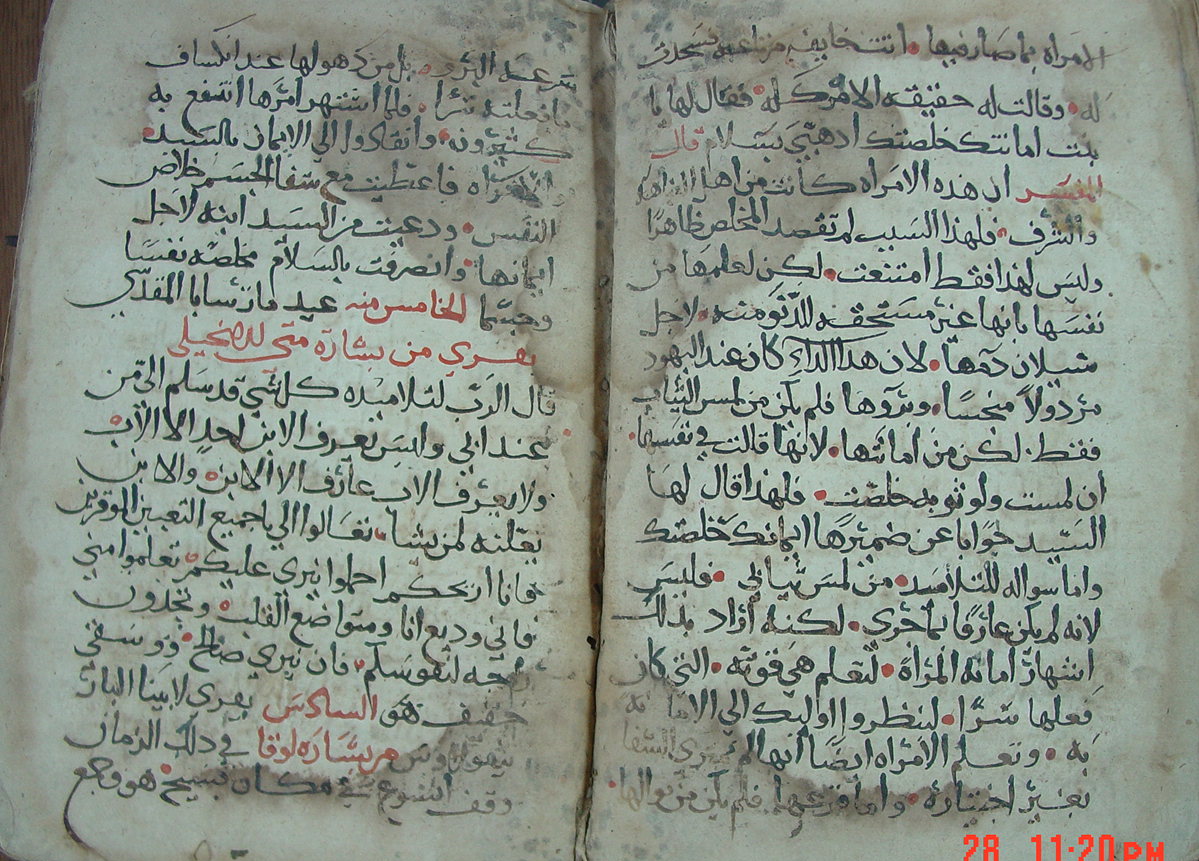 الامراه بما صار فيها• انتخايفه مرتاعه سجدت
له• وقالت له حقيقه الامر كله• فقال لها يا
بنت امانتك خلصتك ادهبي بسلام قال
المفسر ان هذه الامراه كانت من اهل النزاهه
والشرف• فلهذا السبب لم تقصد المخلص ظاهرًا
وليس لهذا فقط امتنعت• لكن لعلمها من
نفسها بانها غير مستحقه للدنو منه• لاجل
سيلان دمها• لان هدا الداء كان عند اليهود
مردولاً منجسًا• وبروها فلم يكن من لمس الثياب
فقط• لكن من امانتها• لانها قالت في نفسها•
ان لمست ولو ثوبه خلصت• فلهذا قال لها
السيد جوابا عن ضميرها ايمانك خلصتك
واما سواله للتلاميد• من لمس ثيابي• فليس
لانه لم يكن عارفًا بما جري• لكنه أراد بدلك
اشهار امانه المراة• لتعلم هي قوته• التي كان
فعلها سرًا• لينظروا اوليك الي الامانه
به• وتعلم الامراه ايضًا انها لم الشفا
بغير اختياره• واما فزعها• فلم يكن من نوالها•
عند البرو• بل من دهولها عند انكساف
ما فعلته سرًا• فلما اشتهر امرها انتفع به
كثيرون• وانقادوا الي الايمان بالسيد•
والامراه فاعطيت مع شفا الجسم خلاص
النفس• ودعيت من السيد ابنه لاجل
ايمانها• وانصرفت بالسلام مخلصه نفسًا
وجسمًا الخامس منه عيد مارتسابا المقدسي
يقري من بشارة متي للانجيلي
قال الرب لتلاميده كل شي قد سلم الي من
عند ابي وليس يعرف الابن احد الا الاب
ولا يعرف الاب عارف الا الابن• والابن
يعلنه لمن يشا• تعالوا الي يا جميع التعبين الموقرين
فانا اريحكم احملوا نيري عليكم• تعلموا مني
فاني وديع انا ومتواضع القلب• وتجدون
راحه لنفوسكم• فان نيري صالح• ووسقي
خفيف هو السادس يقري لابينا البار
من بشاره لوقا في دلك الزمان
وقف ايسوع في مكان فسيح• هو وجمع